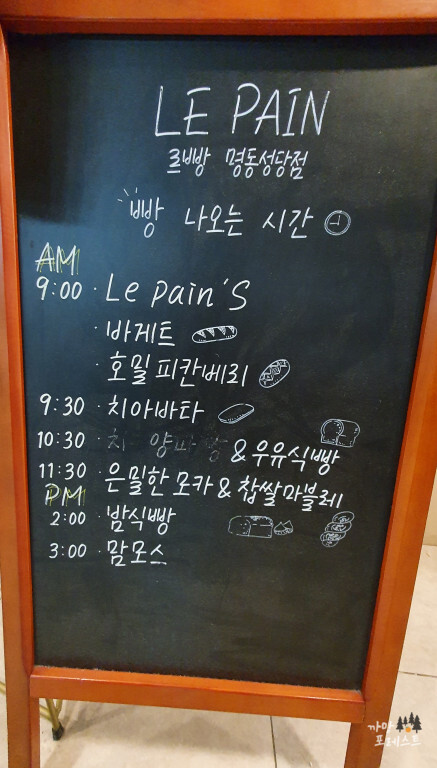 LE PAIN
르빵 명동성당점
빵 나오는 시간
AM
9:00 · Le pain's
· 바게트
· 호밀피칸베리
9:30 · 치아바타
10:30 · 양파빵 & 우유식빵
11:30 · 은밀한 모카 & 찹쌀마블레
PM
2:00 · 밤식빵
3:00 · 맘모스
까망
포레스트